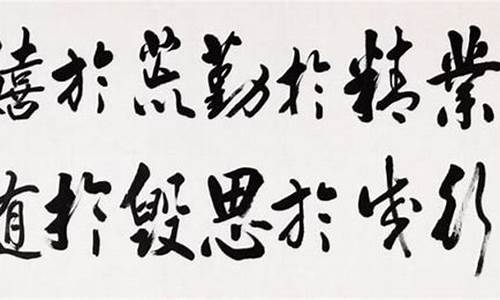 業精於勤荒於嬉
行成於思毀於随